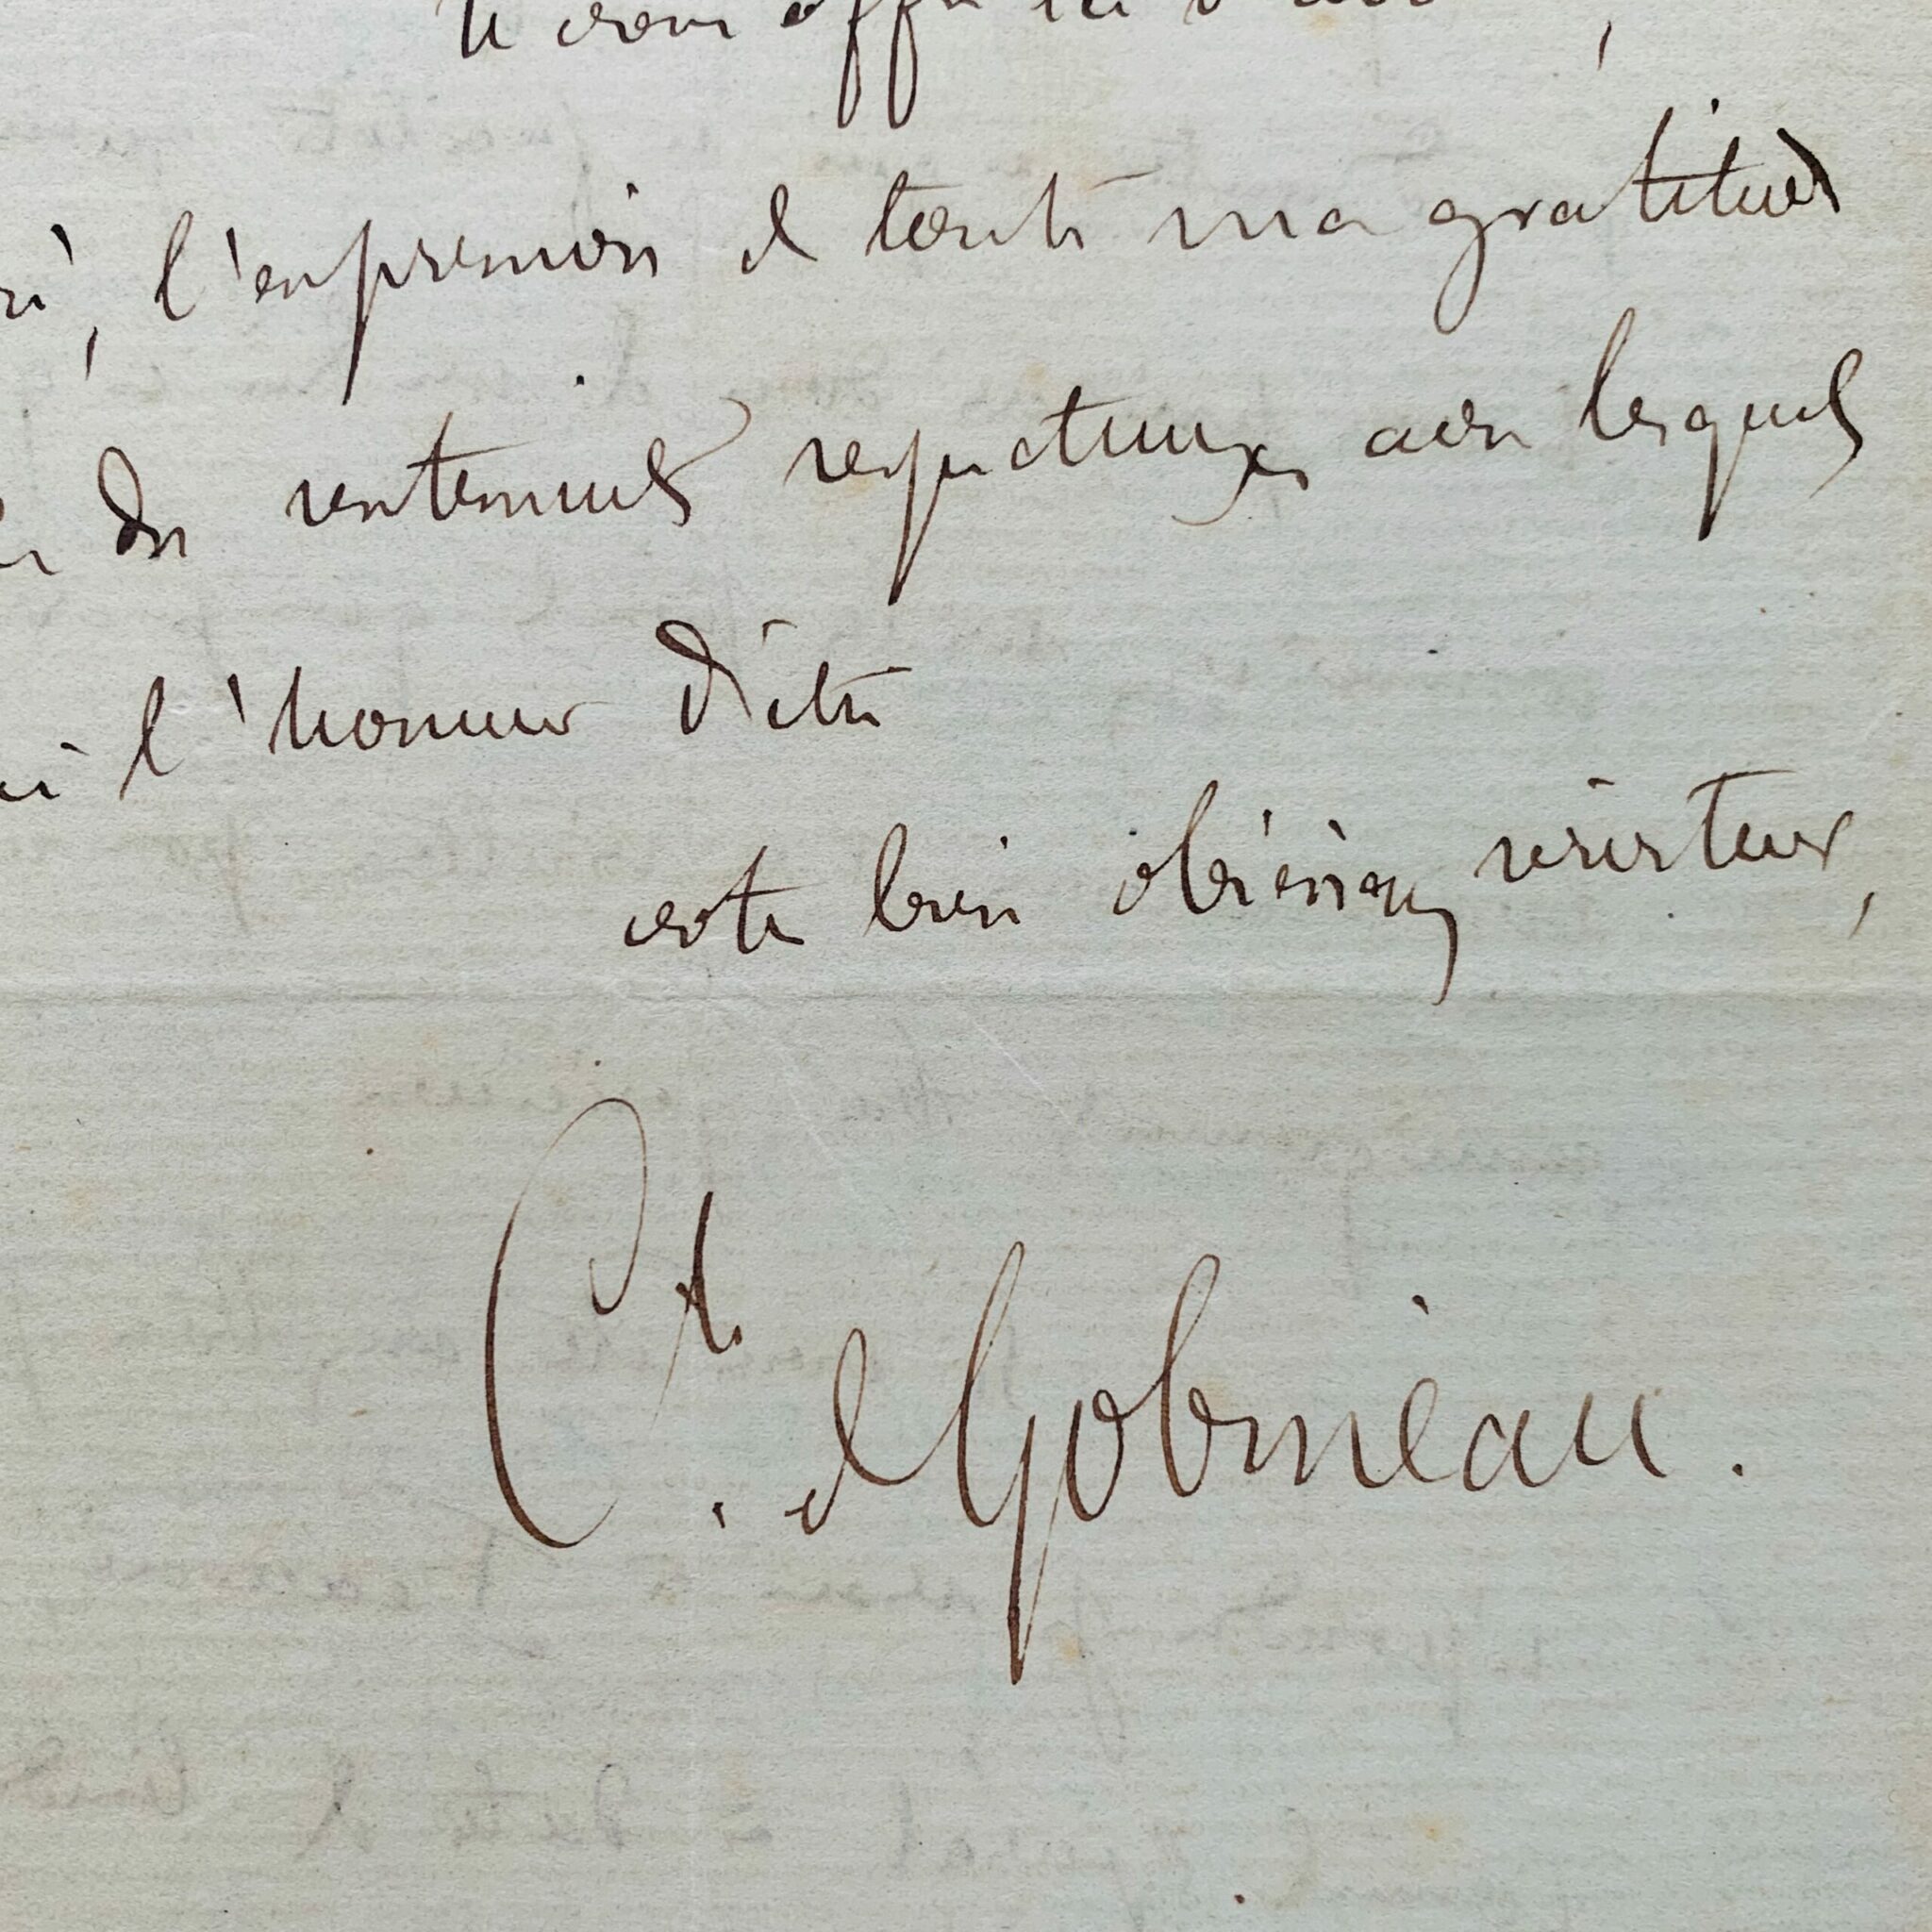 vous offrir ici
, l'expression de toute ma gratitude
des sentiments respectueux avec lesquels
l'honneur d'être
votre bien obéissant serviteur,
Cte. de Gobineau.